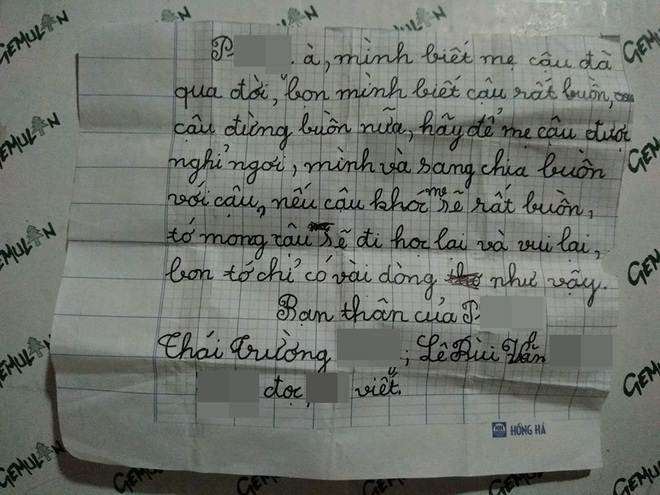 P à, mình biết mẹ cậu đã
qua đời, bọn mình biết cậu rất buồn,
cậu đừng buồn nữa, hãy để mẹ cậu được
nghỉ ngơi, mình và sang chia buồn
với cậu, nếu cậu khóc mẹ sẽ rất buồn,
tớ mong cậu sẽ đi học lại và vui lại,
bọn tớ chỉ có vài dòng như vậy.
Bạn thân của P.
Thái Trường ; Lê Bùi Vấn
đọc, viết.
HỒNG HÀ
GEMULAN
GEMULAN
GEMULAN
GEMULAN
GEMULAN
GEMULAN